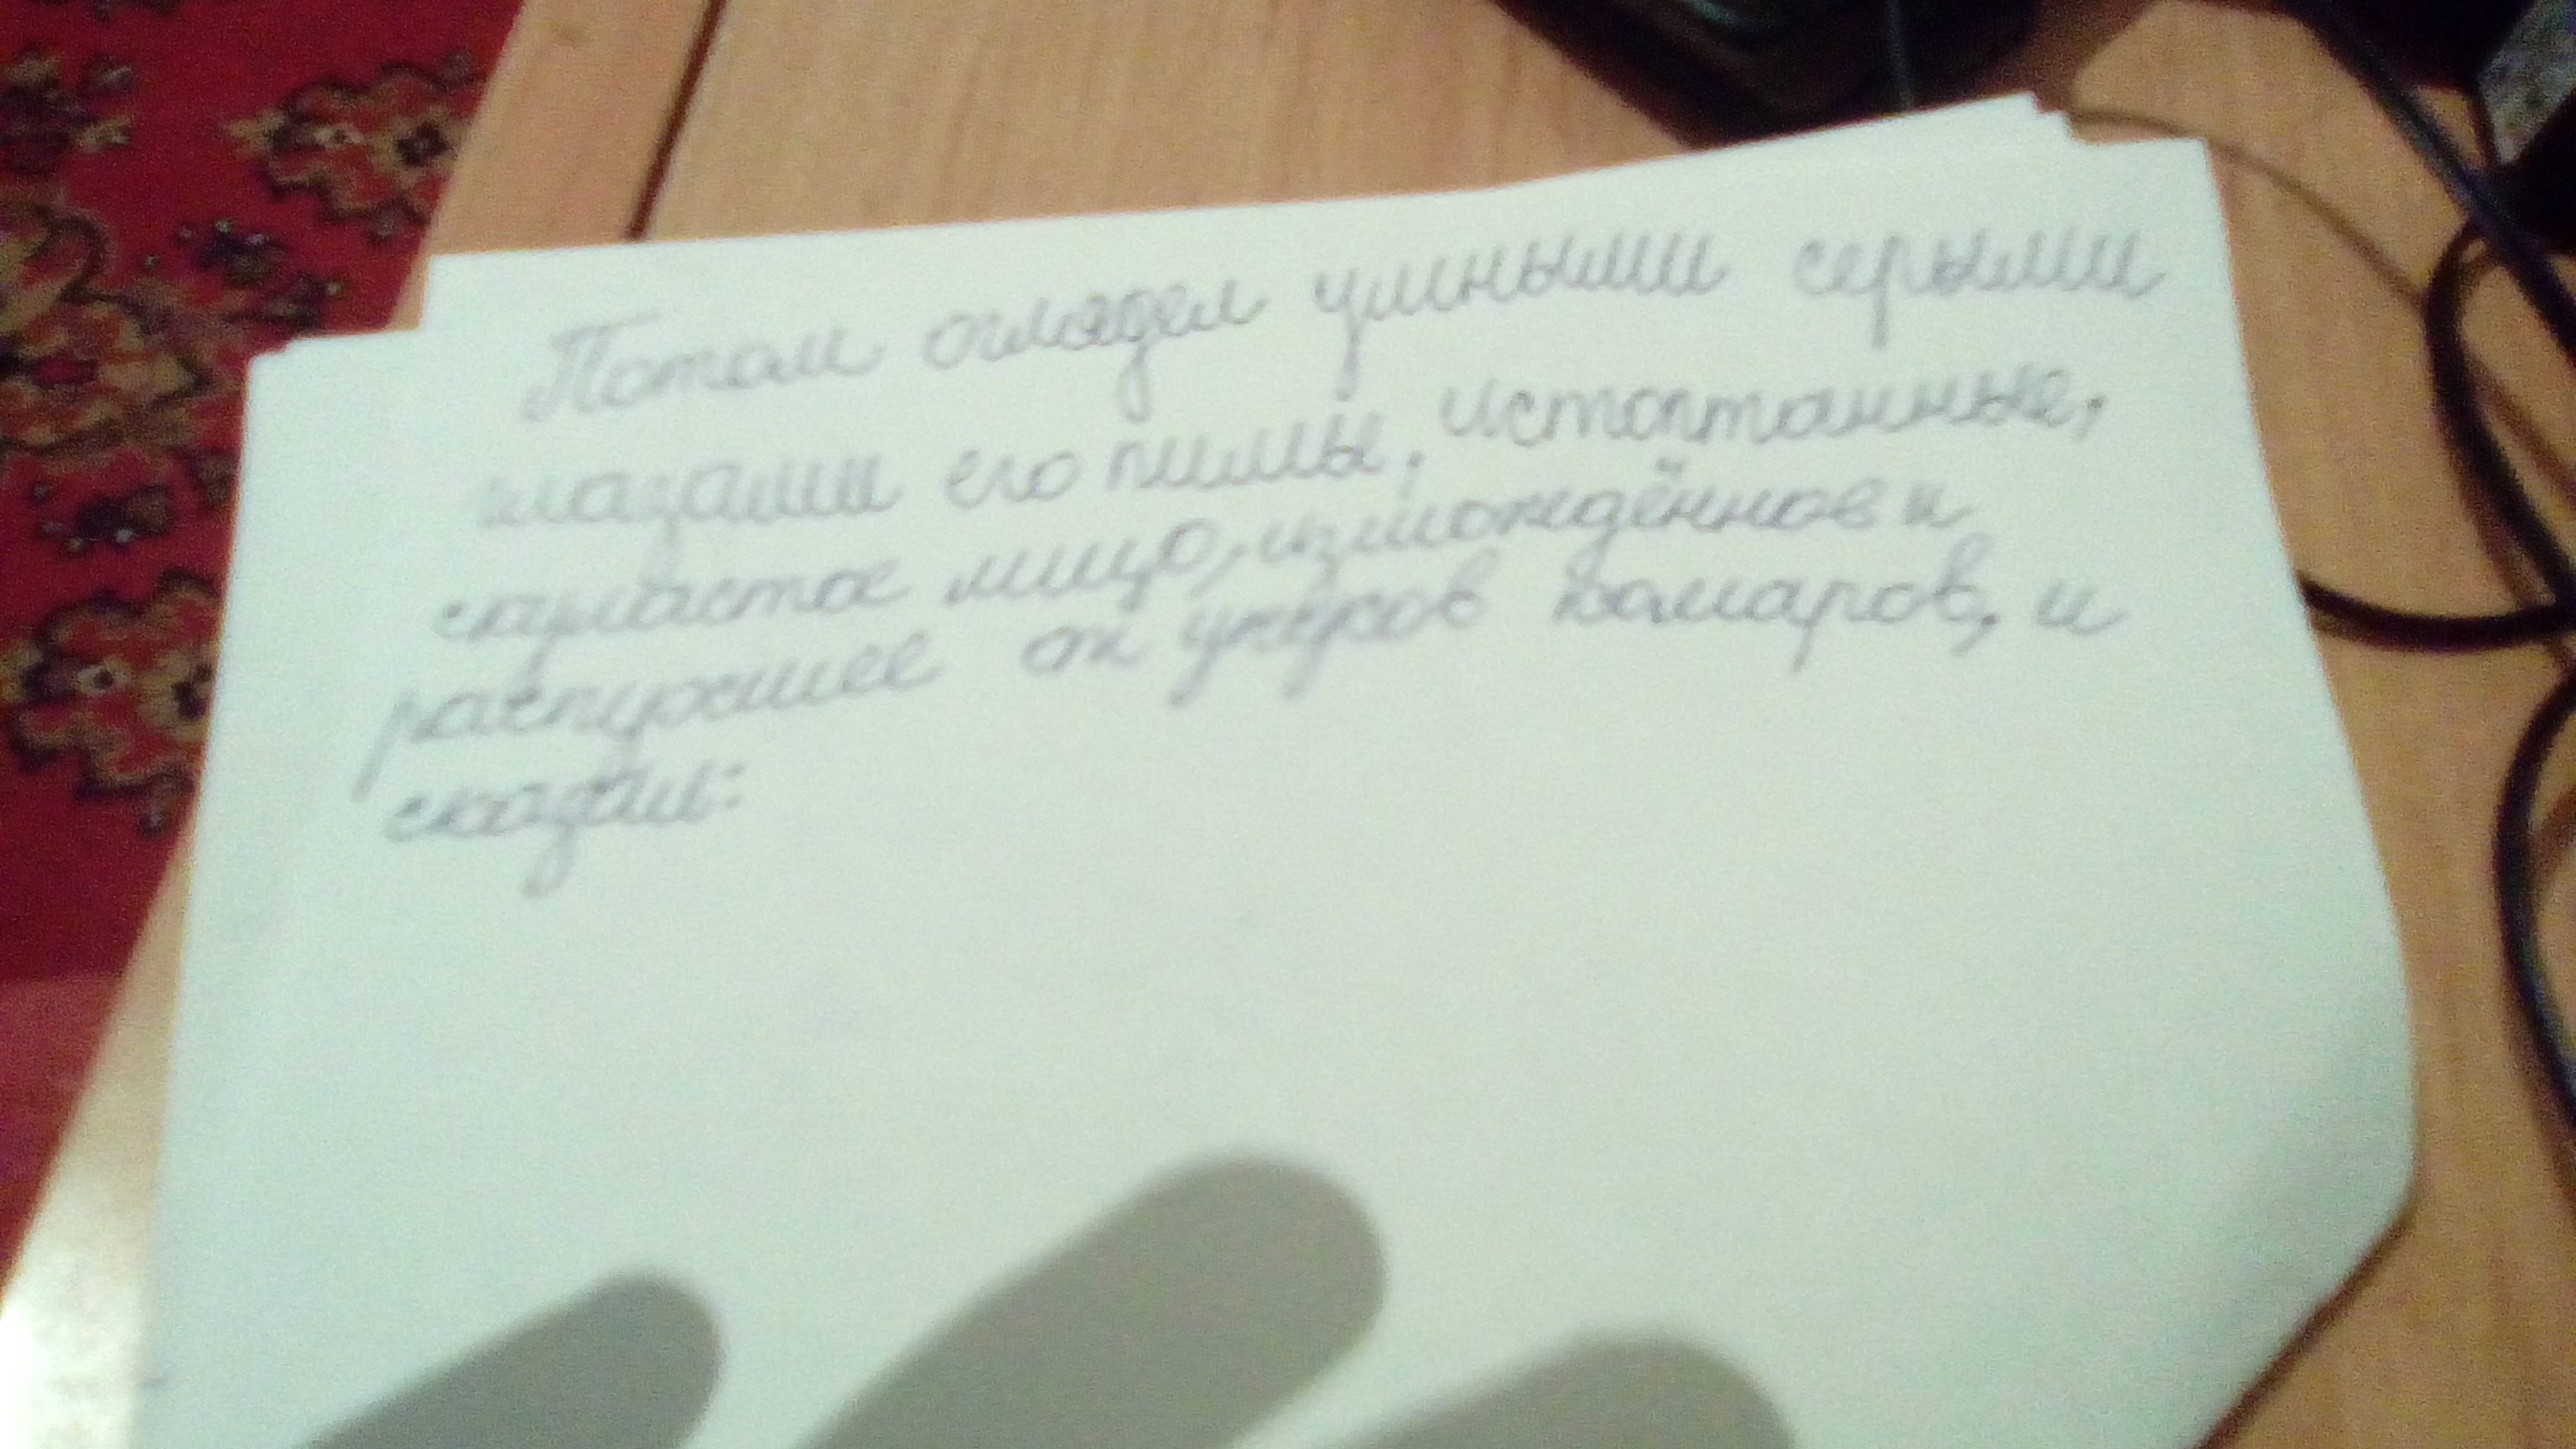 Потом оглядел умными серыми
глазами его пимы, истоптанные,
скуластое лицо, измождённое и
распухшее от укусов комаров, и
сказал: